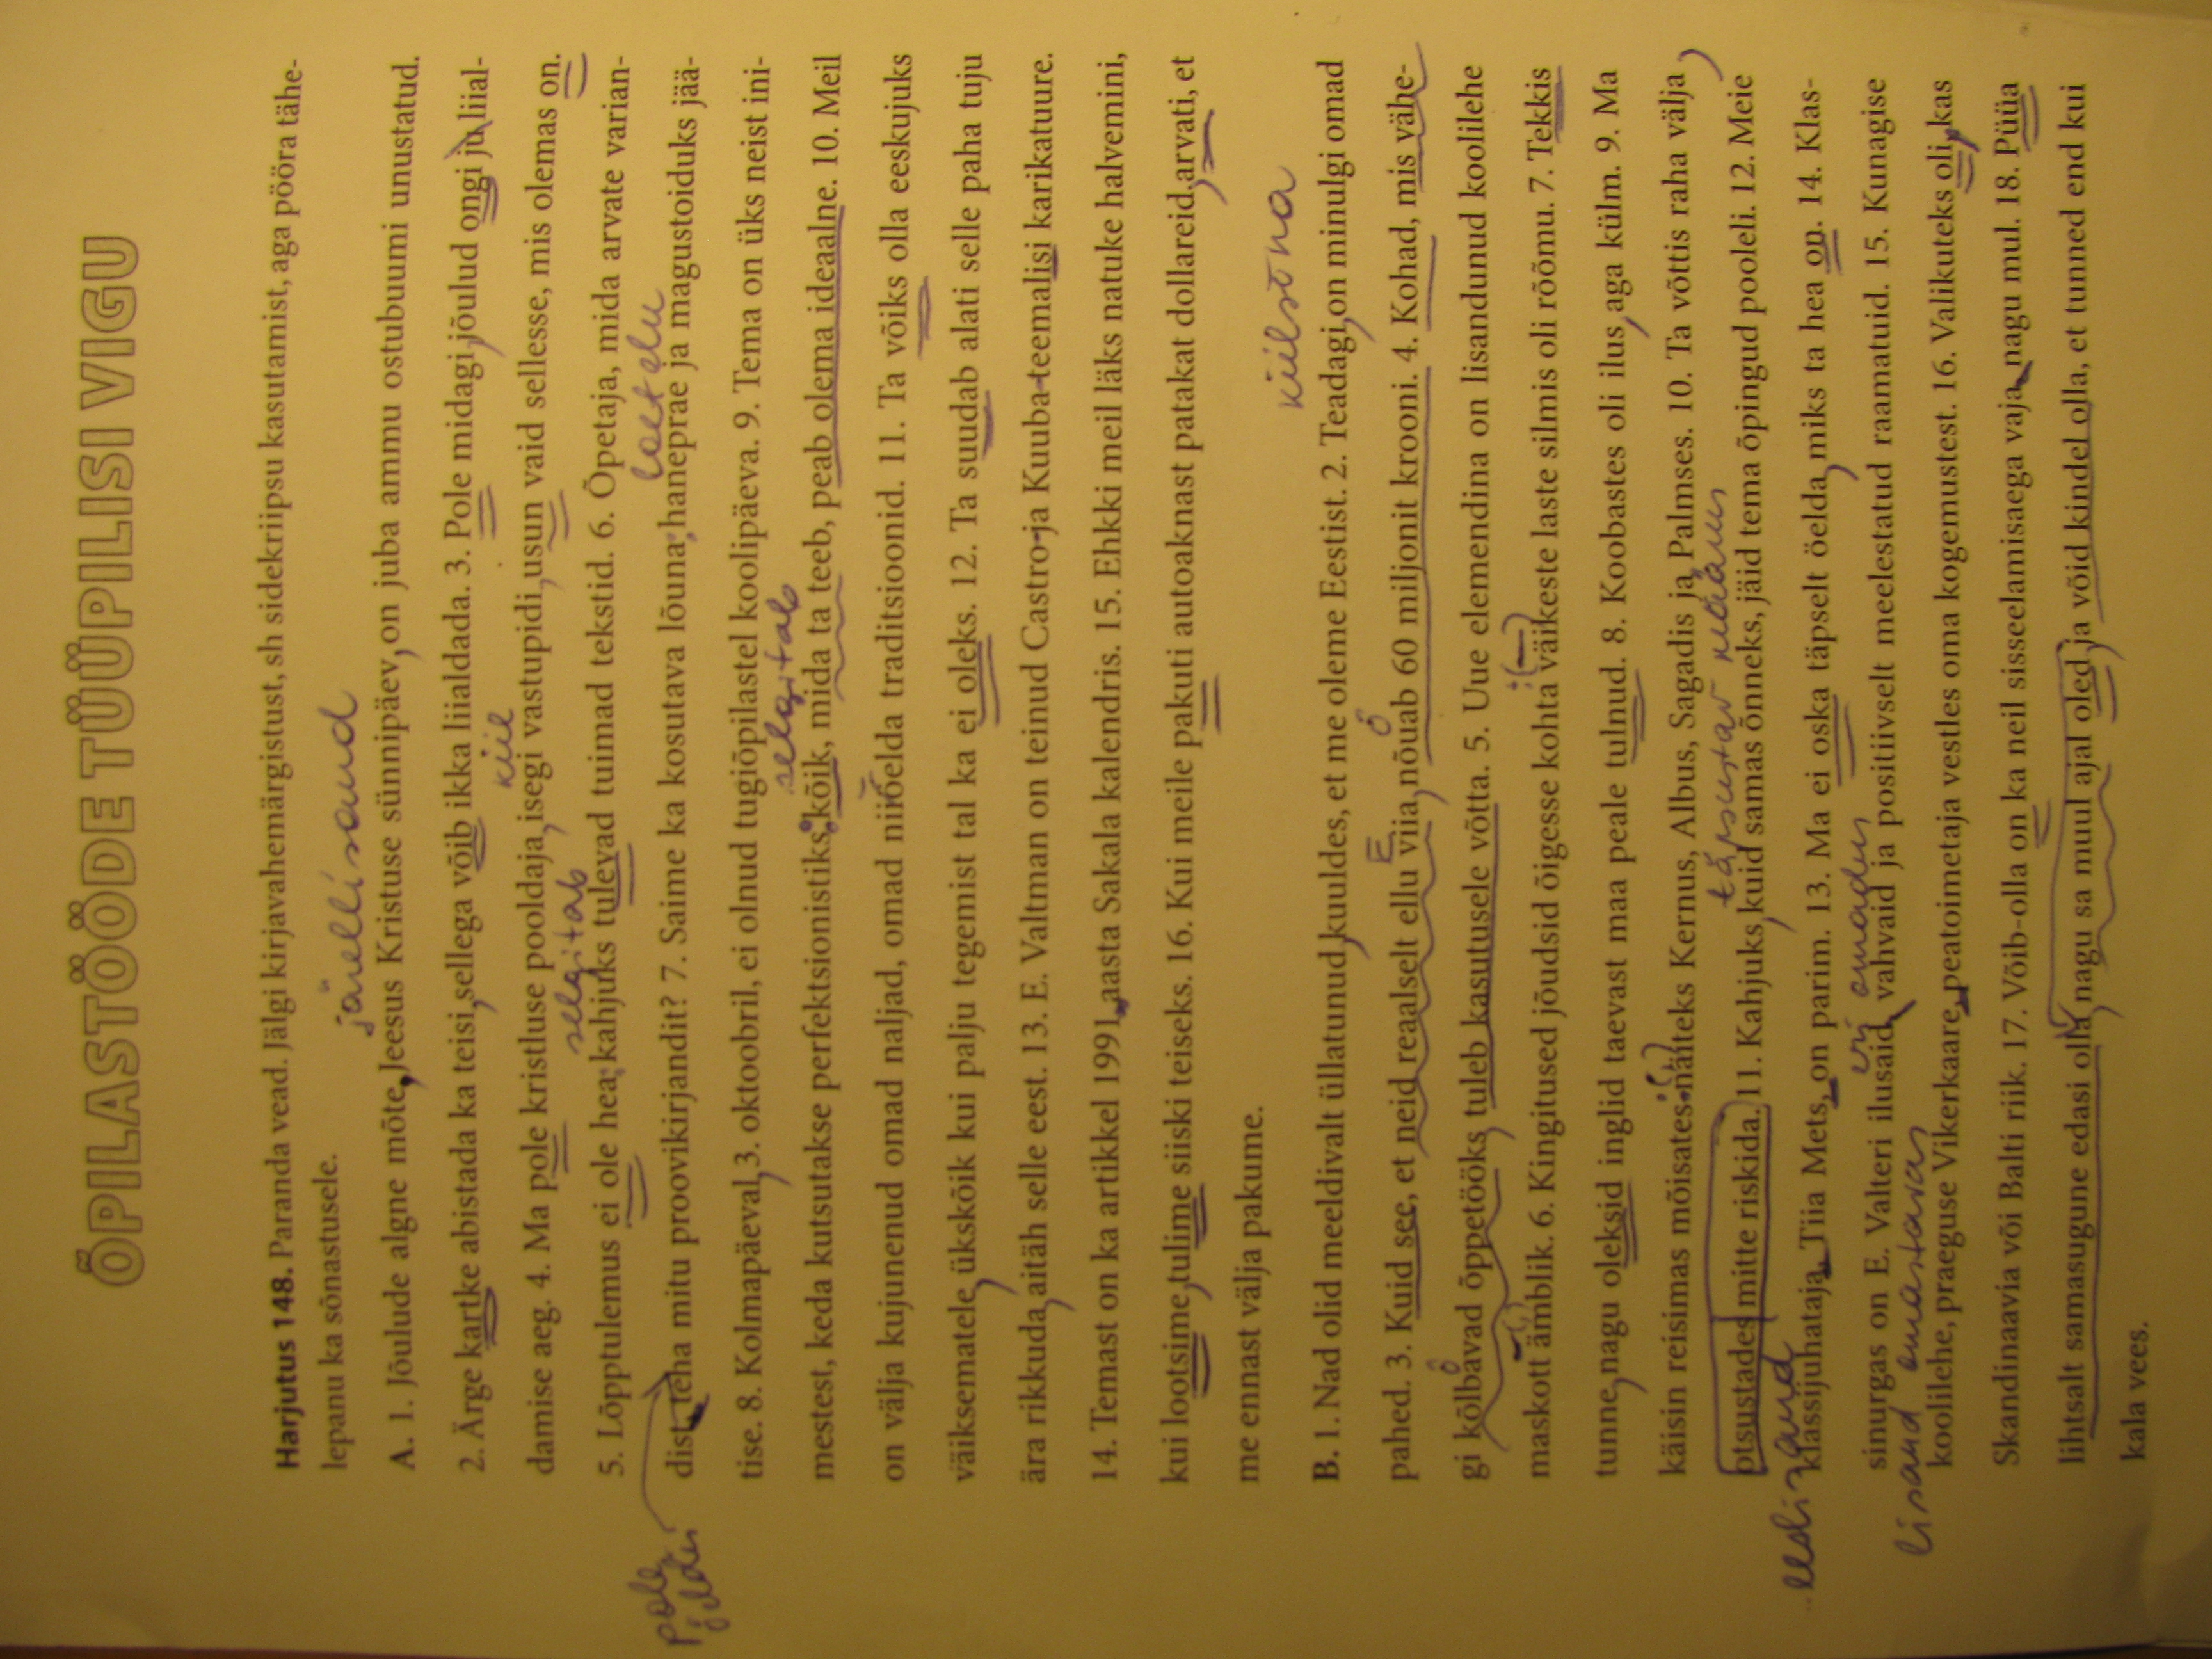 ÕPILASTÖÖDE TÜÜPILISI VIGU
Harjutus 148. Paranda vead. Jälgi kirjavahemärgistust, sh sidekriipsu kasutamist, aga pööra tähe-
lepanu ka sõnastusele.
järellisand
A. 1. Jõulude algne mõte, Jeesus Kristuse sünnipäev, on juba ammu ostubuumi unustatud.
2. Ärge kartke abistada ka teisi, sellega võib ikka liialdada. 3. Pole midagi, jõulud ongi ju liial-
kiil
damise aeg. 4. Ma pole kristluse pooldaja, isegi vastupidi, usun vaid sellesse, mis olemas on.
selgitab
5. Lõpptulemus ei ole hea: kahjuks tulevad tuimad tekstid. 6. Õpetaja, mida arvate varian-
loetelu
dist teha mitu proovikirjandit? 7. Saime ka kosutava lõuna: haneprae ja magustoiduks jää-
pole
tise. 8. Kolmapäeval, 3. oktoobril, ei olnud tugiõpilastel koolipäeva. 9. Tema on üks neist ini-
selgitab
mestest, keda kutsutakse perfektsionistiks: kõik, mida ta teeb, peab olema ideaalne. 10. Meil
on välja kujunenud omad naljad, omad niiöelda traditsioonid. 11. Ta võiks olla eeskujuks
väiksematele, ükskõik kui palju tegemist tal ka ei oleks. 12. Ta suudab alati selle paha tuju
ära rikkuda, aitäh selle eest. 13. E. Valtman on teinud Castro-ja Kuuba-teemalisi karikatuure.
14. Temast on ka artikkel 1991. aasta Sakala kalendris. 15. Ehkki meil läks natuke halvemini,
kui lootsime, tulime siiski teiseks. 16. Kui meile pakuti autoaknast patakat dollareid, arvati, et
me ennast välja pakume.
kiilsõna
B. 1. Nad olid meeldivalt üllatunud, kuuldes, et me oleme Eestist. 2. Teadagi, on minulgi omad
pahed. 3. Kuid see, et neid reaalselt ellu viia, nõuab 60 miljonit krooni. 4. Kohad, mis vähe-
gi kõlbavad õppetööks, tuleb kasutusele võtta. 5. Uue elemendina on lisandunud koolilehe
maskott ämblik. 6. Kingitused jõudsid õigesse kohta väikeste laste silmis oli rõõmu. 7. Tekkis
tunne, nagu oleksid inglid taevast maa peale tulnud. 8. Koobastes oli ilus, aga külm. 9. Ma
käisin reisimas mõisates näiteks Kernus, Albus, Sagadis ja Palmses. 10. Ta võttis raha välja,
täpsustav määrus
otsustades mitte riskida. 11. Kahjuks, kuid samas õnneks, jäid tema õpingud pooleli. 12. Meie
eeslisand
klassijuhataja, Tiia Mets, on parim. 13. Ma ei oska täpselt öelda, miks ta hea on. 14. Klas-
eri omadus
sinurgas on E. Valteri ilusaid, vahvaid ja positiivselt meelestatud raamatuid. 15. Kunagise
lisand omastavas
koolilehe, praeguse Vikerkaare, peatoimetaja vestles oma kogemustest. 16. Valikuteks oli, kas
Skandinaavia või Balti riik. 17. Võib-olla on ka neil sisseelamisaega vaja, nagu mul. 18. Püüa
lihtsalt samasugune edasi olla, nagu sa muul ajal oled, ja võid kindel olla, et tunned end kui
kala vees.